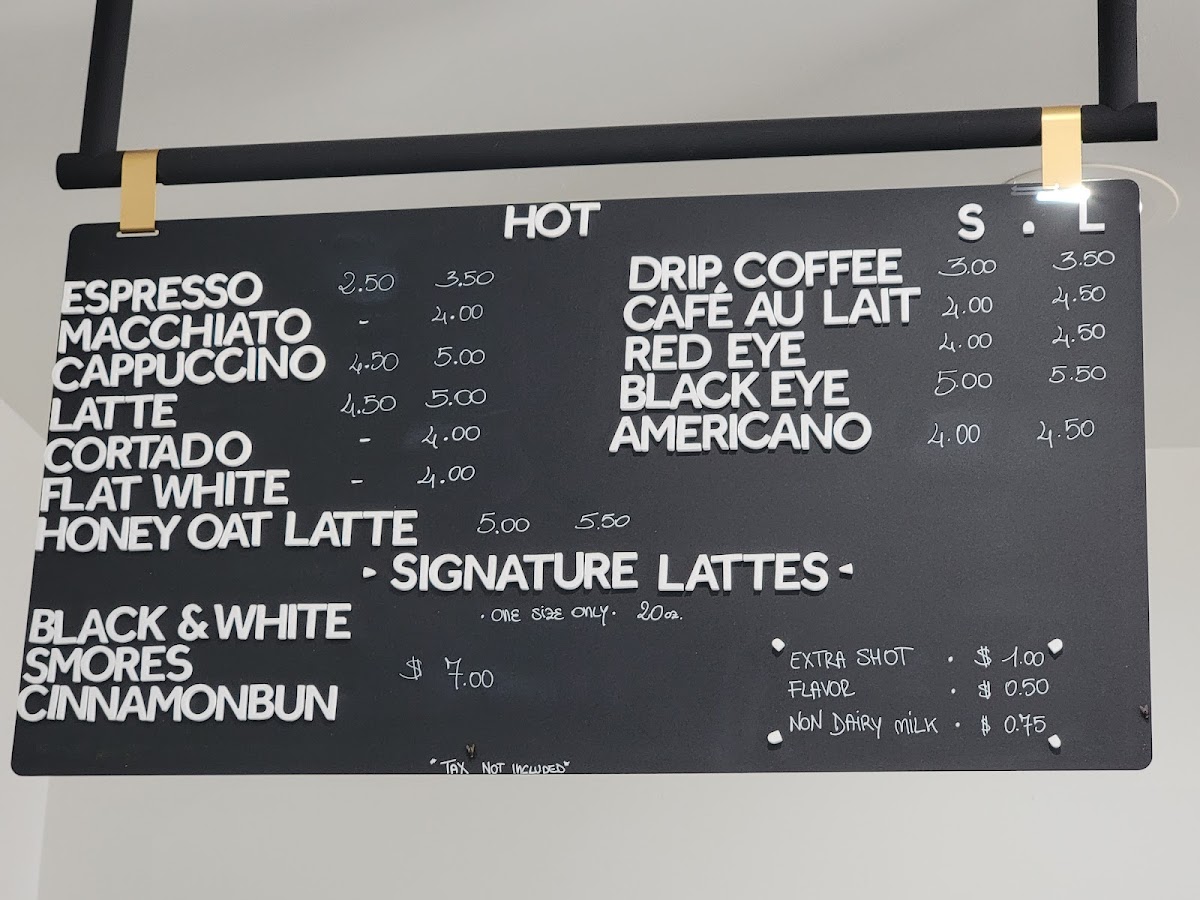 HOT
S . L
ESPRESSO 2.50 3.50
MACCHIATO - 4.00
CAPPUCCINO 4.50 5.00
LATTE 4.50 5.00
CORTADO - 4.00
FLAT WHITE - 4.00
HONEY OAT LATTE 5.00 5.50
DRIP COFFEE 3.00 3.50
CAFÉ AU LAIT 4.00 4.50
RED EYE 4.00 4.50
BLACK EYE 5.00 5.50
AMERICANO 4.00 4.50
SIGNATURE LATTES
· ONE SIZE ONLY · 20oz.
BLACK & WHITE
SMORES
CINNAMONBUN
$ 7.00
EXTRA SHOT · $ 1.00
FLAVOR · $ 0.50
NON DAIRY MILK · $ 0.75
"TAX NOT INCLUDED"